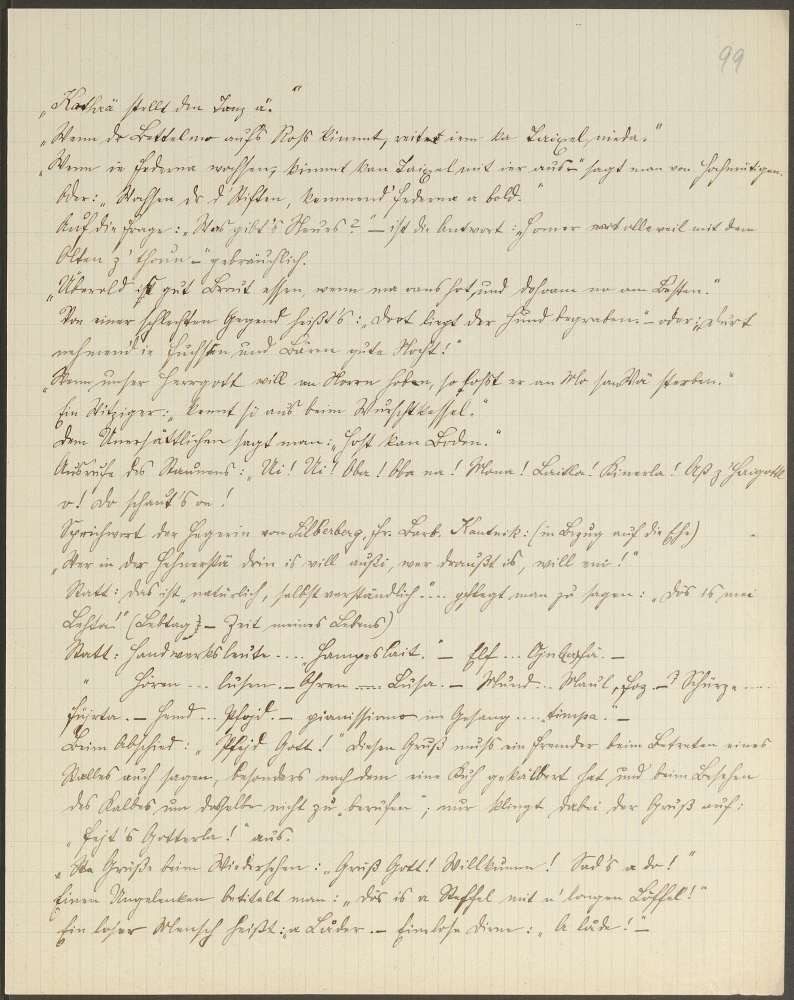 99
„Kathrä stellt den Tanz ä."
„Wenn dr Bettelmo aufs Roß kimmt, reitet iem ka Taixel nieda."
„Wenn ie Federna wochsen, kimmt kan Taixel mit ier aus" sagt man von Hochmütigen.
Oder: „Wachsen dr d' Stiften, kommend Federna a bold."
Auf die Frage: „Was gibt's Neues?" – ist die Antwort: „Homer alleweil mit dem
Olten z' thoun –" gebräuchlich.
„Überold ist gut Brout essen, wenn ma oans hot, und dahoam no am Besten."
Von einer schlechten Gegend heißt's: „Dort liegt der Hund begraben." – oder: „Durt
nehmend ie Füchsen und Bären gute Nocht!"
„Wenn unser Herrgott will an Norrn hoben, so loßt er an Mo sa Wä sterben."
Ein Witziger: „kennt si aus beim Wurschtkessel."
Dem Unersättlichen sagt man: „Host kan Boden."
Ausrufe des Staunens: „Ui! Ui! Oba! Oba na! Mona! Laitla! Kinerla! Aß z'
o! Do schaut's on!
Sprichwort der Hegerin von Silberberg, Fr. Barb. Kautnik: (in Bezug auf die Ehe)
„Wer in der Hehnerstä drin is will aussi, wer draußt is, will eni!"
Statt: das ist „natürlich, selbstverständlich" ... pflegt man zu sagen: „Dös is mei
Lehta!" (Lebtag) – Zeit meines Lebens)
Statt: Handwerksleute .... „Hampeslait." – Elf ... –
" Hören ... lusen. – Ohren .... Lusa. – Mund ... Maul, Foz. –
Schürze ....
Fürta. – Hemd ... Pfojd. – pianissimo im Gesang .... timpa." –
Beim Abschied: „Pfejd Gott!" Diesen Gruß muß ein Fremder beim Betreten eines
Stalles auch sagen, besonders nachdem eine Kuh gekälbert hat und beim Besehen
des Kalbes um dasselbe nicht zu „berufen"; nur klingt dabei der Gruß auf:
„Fejt's Gotterla!" aus.
Grüße beim Wiedersehen: „Grüß Gott! Willkumm! Sad's a do!"
Einen Ungelenken betitelt man: „Dös is a Steffel mit n' langen Löffel!"
Ein loser Mensch heißt: „a Låder. – Eine lose Dirne: „A låde!" –